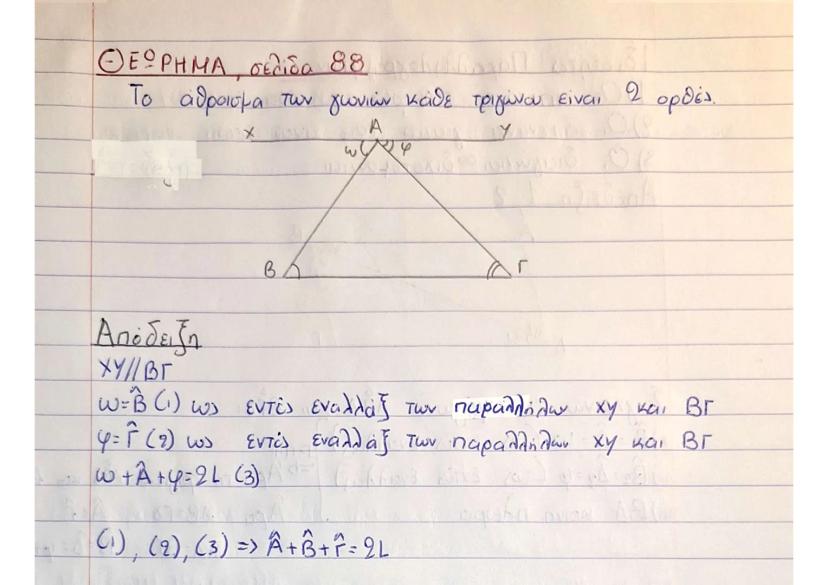 ΘΕΩΡΗΜΑ, σελίδα 88
Το άθροισμα των γωνιών κάθε τριγώνου είναι 2 ορθές.
x A y
ω φ
B Γ
Απόδειξη
XY//ΒΓ
ω=B̂ (1) ως εντός εναλλάξ των παραλλήλων xy και ΒΓ
φ=Γ̂ (2) ως εντός εναλλάξ των παραλλήλων xy και ΒΓ
ω+Â+φ=2L (3)
(1), (2), (3) => Â+B̂+Γ̂=2L